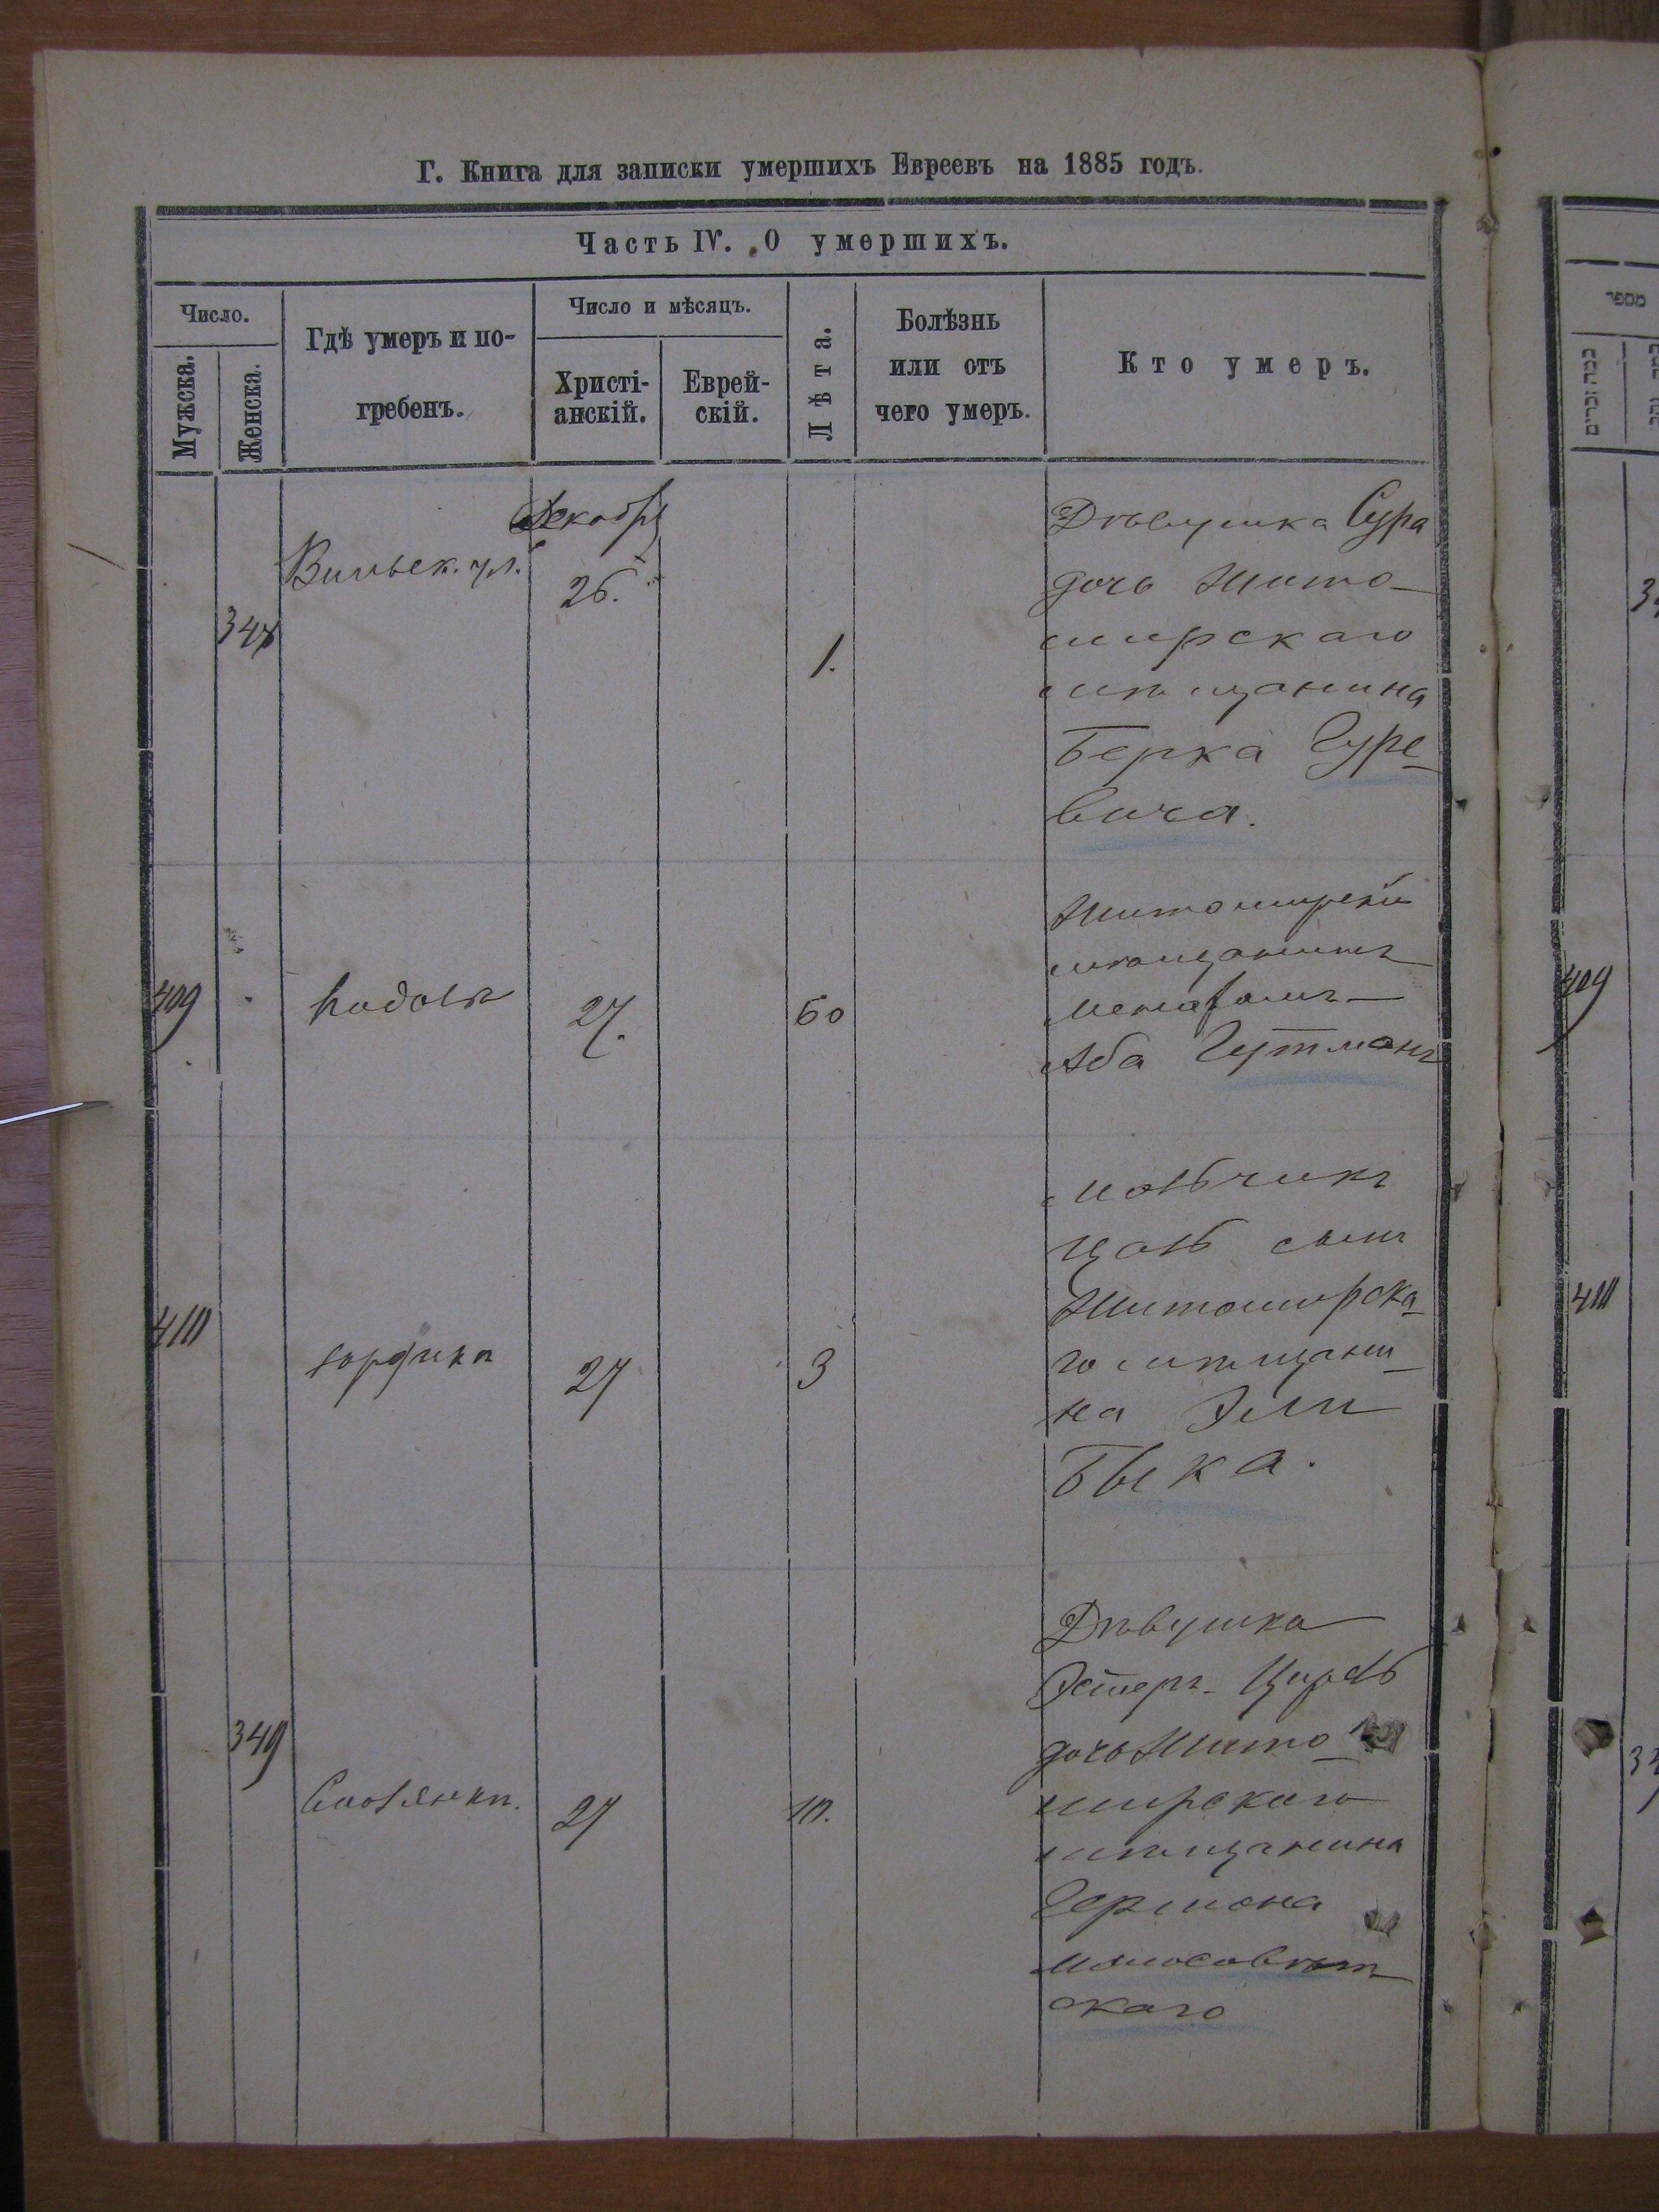 Г. Книга для записки умершихъ Евреевъ на 1885 годъ.
Часть IV. О умершихъ.
Число.
Мужска.
Женска.
Гдѣ умеръ и по-
гребенъ.
Число и мѣсяцъ.
Христі-
анскій.
Еврей-
скій.
Лѣта.
Болѣзнь
или отъ
чего умеръ.
Кто умеръ.
348
Вильск. ул.
Декабря
26.
1.
Дѣвушка Сура
дочь Жито-
мирскаго
мѣщанина
Берка Гуре-
вича.
409
27.
60
Житомирскій
мѣщанинъ
Аба Гутманъ
410
27
3
Мальчикъ
сынъ
Житомирска-
го мѣщани-
на Эли
Быка.
349
27
10.
Дѣвушка
Эстеръ-
дочь Жито-
мирскаго
мѣщанина
Гершона
скаго
מספר
409
410